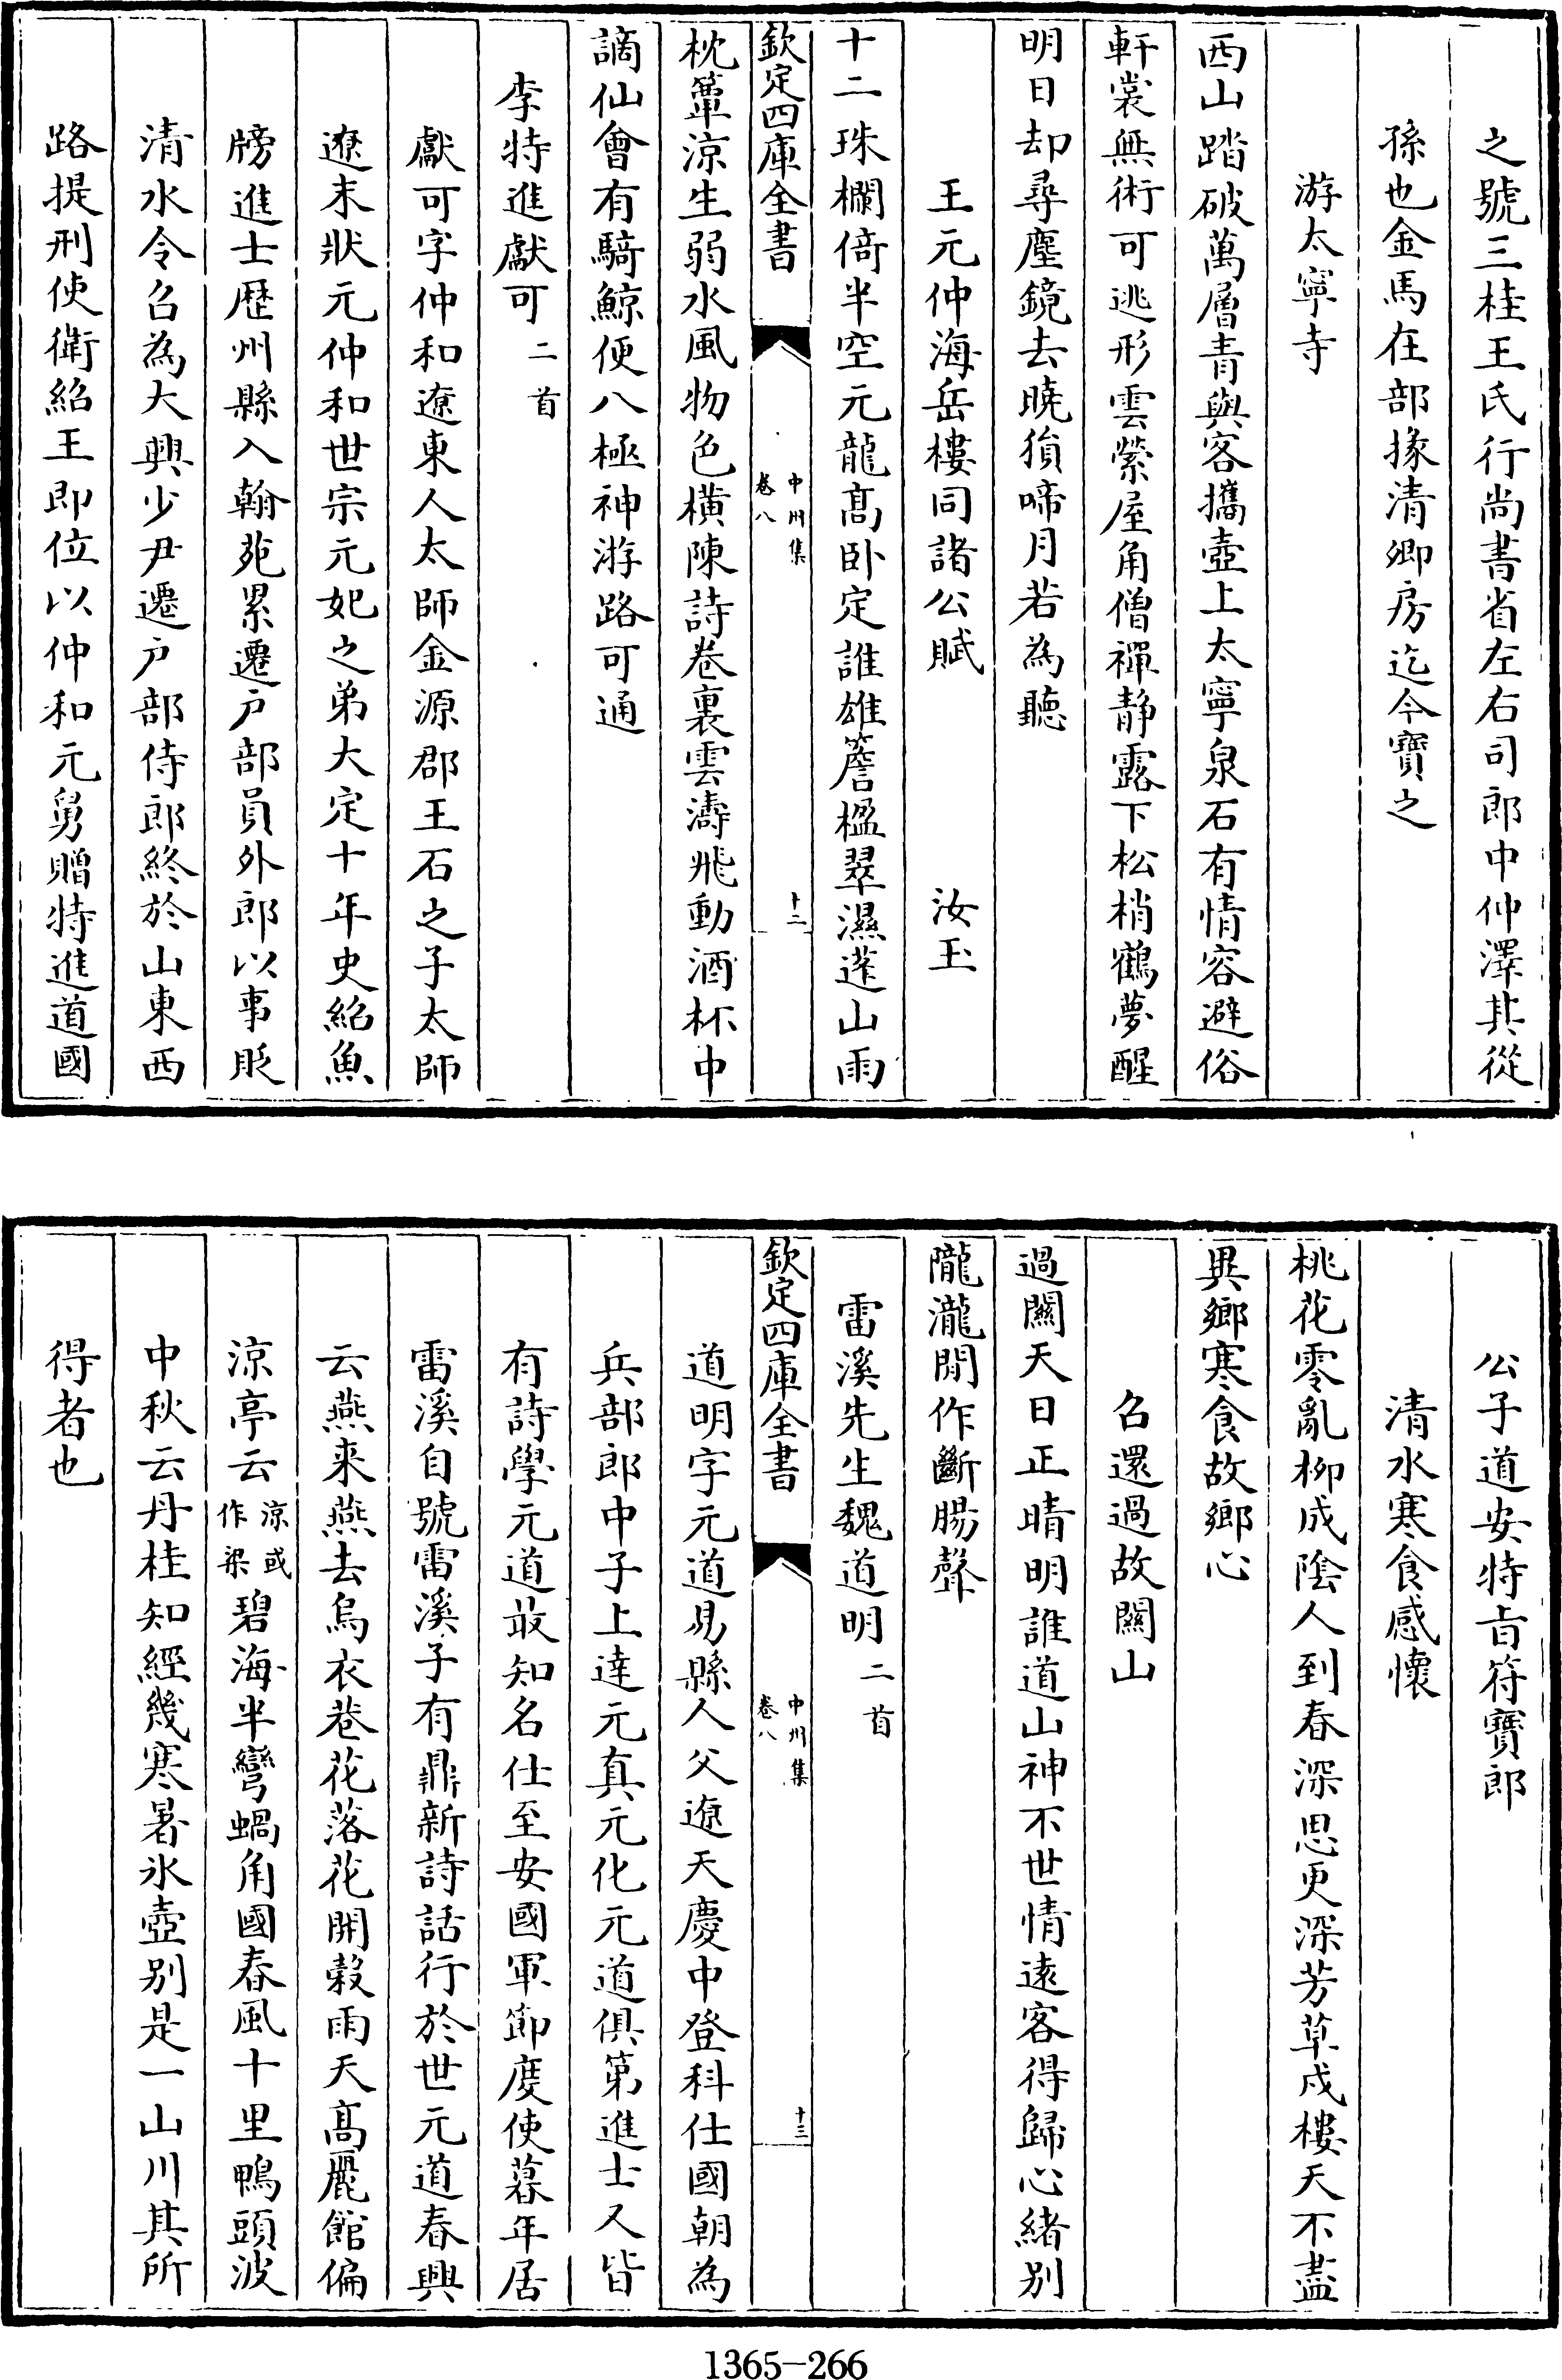 之號三桂王氏行尚書省左右司郎中仲澤其從
孫也金馬在部掾清卿房迄今寶之
游太寧寺
西山踏破萬層青與客攜壺上太寧泉石有情容避俗
軒裳無術可逃形雲縈屋角僧禪静露下松梢鶴夢醒
明日却尋塵鏡去曉猿啼月若為聽
王元仲海岳樓同諸公賦 汝玉
十二珠欄倚半空元龍髙卧定誰雄簷楹翠濕蓬山雨
欽定四庫全書 中州集 卷八 十二
枕簟凉生弱水風物色横陳詩卷裏雲濤飛動酒杯中
謫仙會有騎鯨便八極神游路可通
李特進獻可 二首
獻可字仲和遼東人太師金源郡王石之子太師
遼末狀元仲和世宗元妃之弟大定十年史紹魚
牓進士歴州縣入翰苑累遷户部員外郎以事貶
清水令召為大興少尹遷户部侍郎終於山東西
路提刑使衛紹王即位以仲和元舅贈特進道國
公子道安特㫖符寶郎
清水寒食感懷
桃花零亂柳成陰人到春深思更深芳草戍樓天不盡
異鄉寒食故鄉心
召還過故闗山
過闗天日正晴明誰道山神不世情遠客得歸心緒别
隴瀧閒作斷腸聲
雷溪先生魏道明 二首
欽定四庫全書 中州集 卷八 十三
道明字元道易縣人父遼天慶中登科仕國朝為
兵部郎中子上達元真元化元道俱第進士又皆
有詩學元道最知名仕至安國軍節度使暮年居
雷溪自號雷溪子有鼎新詩話行於世元道春興
云燕来燕去烏衣巷花落花開榖雨天髙麗館偏
涼亭云 涼或作梁 碧海半彎蝸角國春風十里鴨頭波
中秋云丹桂知經幾寒暑氷壺别是一山川其所
得者也
1365-266